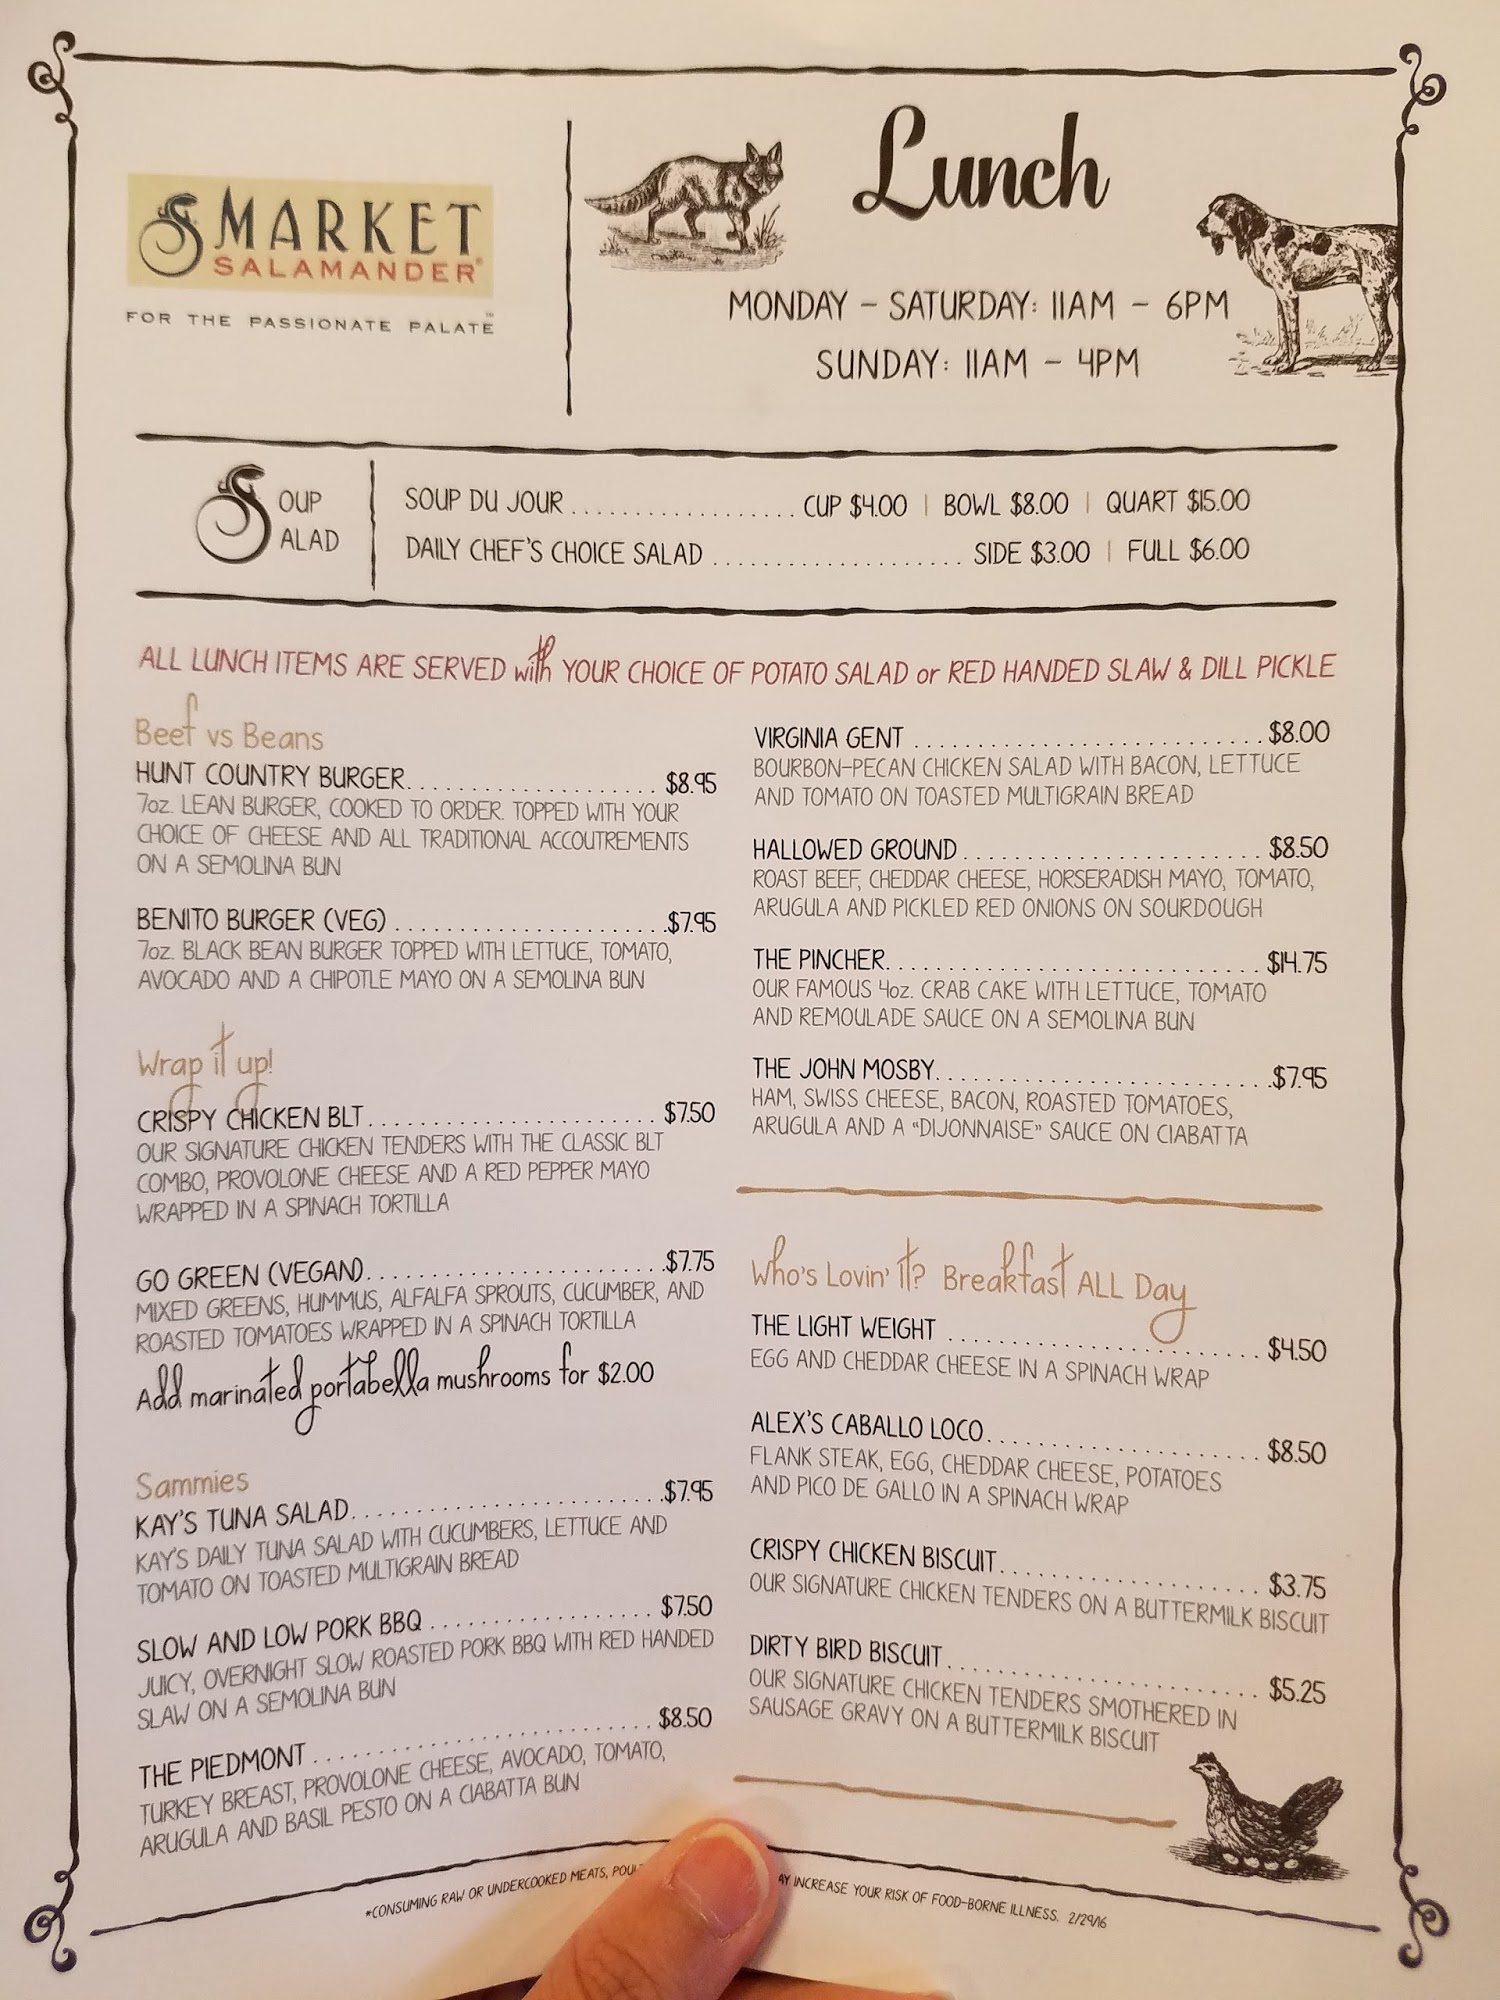 MARKET
SALAMANDER®
FOR THE PASSIONATE PALATE™
Lunch
MONDAY - SATURDAY: 11AM - 6PM
SUNDAY: 11AM - 4PM
SOUP
SALAD
SOUP DU JOUR ................... CUP $4.00 | BOWL $8.00 | QUART $15.00
DAILY CHEF'S CHOICE SALAD ..................... SIDE $3.00 | FULL $6.00
ALL LUNCH ITEMS ARE SERVED with YOUR CHOICE OF POTATO SALAD or RED HANDED SLAW & DILL PICKLE
Beef vs Beans
HUNT COUNTRY BURGER....................... $8.95
7oz. LEAN BURGER, COOKED TO ORDER. TOPPED WITH YOUR
CHOICE OF CHEESE AND ALL TRADITIONAL ACCOUTREMENTS
ON A SEMOLINA BUN
BENITO BURGER (VEG) .........................$7.95
7oz. BLACK BEAN BURGER TOPPED WITH LETTUCE, TOMATO,
AVOCADO AND A CHIPOTLE MAYO ON A SEMOLINA BUN
Wrap it up!
CRISPY CHICKEN BLT.......................... $7.50
OUR SIGNATURE CHICKEN TENDERS WITH THE CLASSIC BLT
COMBO, PROVOLONE CHEESE AND A RED PEPPER MAYO
WRAPPED IN A SPINACH TORTILLA
GO GREEN (VEGAN)...........................$7.75
MIXED GREENS, HUMMUS, ALFALFA SPROUTS, CUCUMBER, AND
ROASTED TOMATOES WRAPPED IN A SPINACH TORTILLA
Add marinated portabella mushrooms for $2.00
Sammies
KAY'S TUNA SALAD............................$7.95
KAY'S DAILY TUNA SALAD WITH CUCUMBERS, LETTUCE AND
TOMATO ON TOASTED MULTIGRAIN BREAD
SLOW AND LOW PORK BBQ .................... $7.50
JUICY, OVERNIGHT SLOW ROASTED PORK BBQ WITH RED HANDED
SLAW ON A SEMOLINA BUN
THE PIEDMONT ............................... $8.50
TURKEY BREAST, PROVOLONE CHEESE, AVOCADO, TOMATO,
ARUGULA AND BASIL PESTO ON A CIABATTA BUN
VIRGINIA GENT ...............................$8.00
BOURBON-PECAN CHICKEN SALAD WITH BACON, LETTUCE
AND TOMATO ON TOASTED MULTIGRAIN BREAD
HALLOWED GROUND........................... $8.50
ROAST BEEF, CHEDDAR CHEESE, HORSERADISH MAYO, TOMATO,
ARUGULA AND PICKLED RED ONIONS ON SOURDOUGH
THE PINCHER.................................. $14.75
OUR FAMOUS 4oz. CRAB CAKE WITH LETTUCE, TOMATO
AND REMOULADE SAUCE ON A SEMOLINA BUN
THE JOHN MOSBY..............................$7.95
HAM, SWISS CHEESE, BACON, ROASTED TOMATOES,
ARUGULA AND A "DIJONNAISE" SAUCE ON CIABATTA
Who's Lovin' It? Breakfast ALL Day
THE LIGHT WEIGHT ........................... $4.50
EGG AND CHEDDAR CHEESE IN A SPINACH WRAP
ALEX'S CABALLO LOCO........................ $8.50
FLANK STEAK, EGG, CHEDDAR CHEESE, POTATOES
AND PICO DE GALLO IN A SPINACH WRAP
CRISPY CHICKEN BISCUIT....................... $3.75
OUR SIGNATURE CHICKEN TENDERS ON A BUTTERMILK BISCUIT
DIRTY BIRD BISCUIT............................ $5.25
OUR SIGNATURE CHICKEN TENDERS SMOTHERED IN
SAUSAGE GRAVY ON A BUTTERMILK BISCUIT
*CONSUMING RAW OR UNDERCOOKED MEATS, INCREASE YOUR RISK OF FOOD-BORNE ILLNESS. 2/29/16